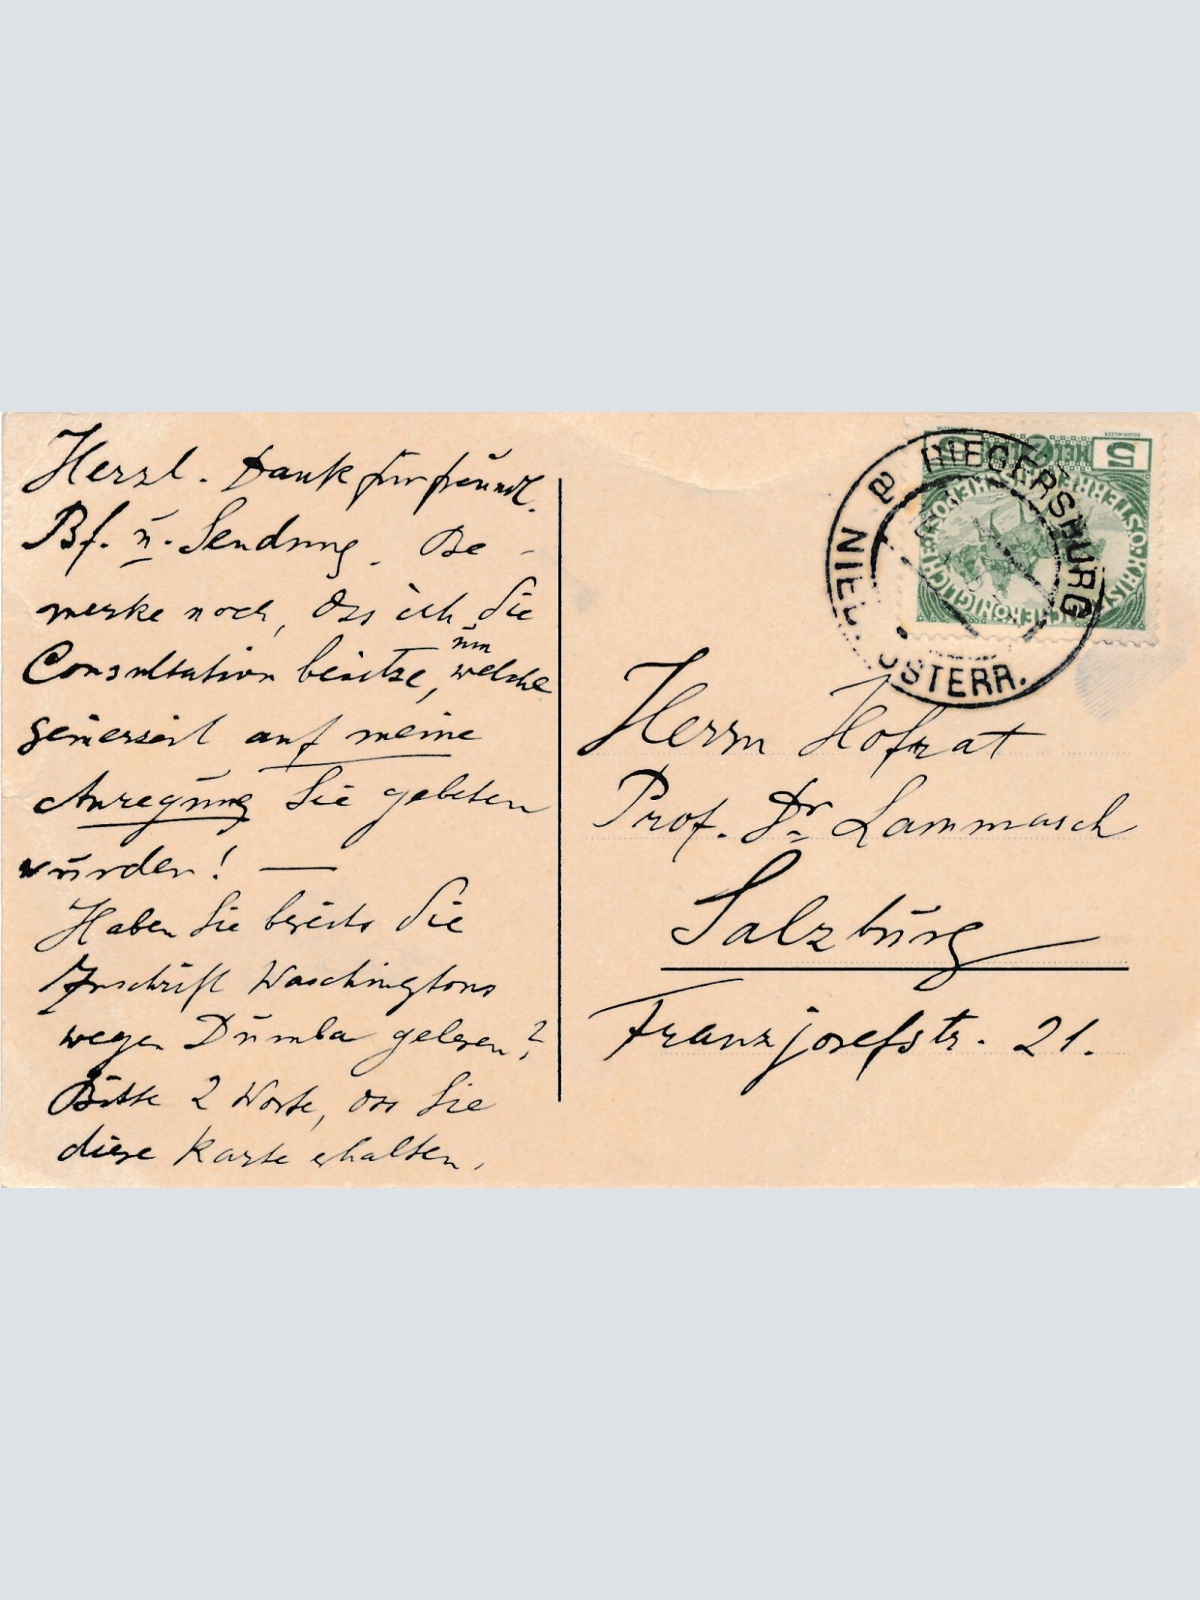 Herzl. Dank für freundl.
Bf. u. Sendung. Be-
merke noch, dss ich die
Consultation besitze, um welche
seinerzeit auf meine
Anregung Sie gebeten
wurden! —
Haben Sie bereits die
Zuschrift Waschingtons
wegen Dumba gelesen?
Bitte 2 Worte, dss Sie
diese Karte erhalten.
RIEGERSBURG
ÖSTERR.
5
Herrn Hofrat
Prof. Dr Lammasch
Salzburg
Franzjosefstr. 21.